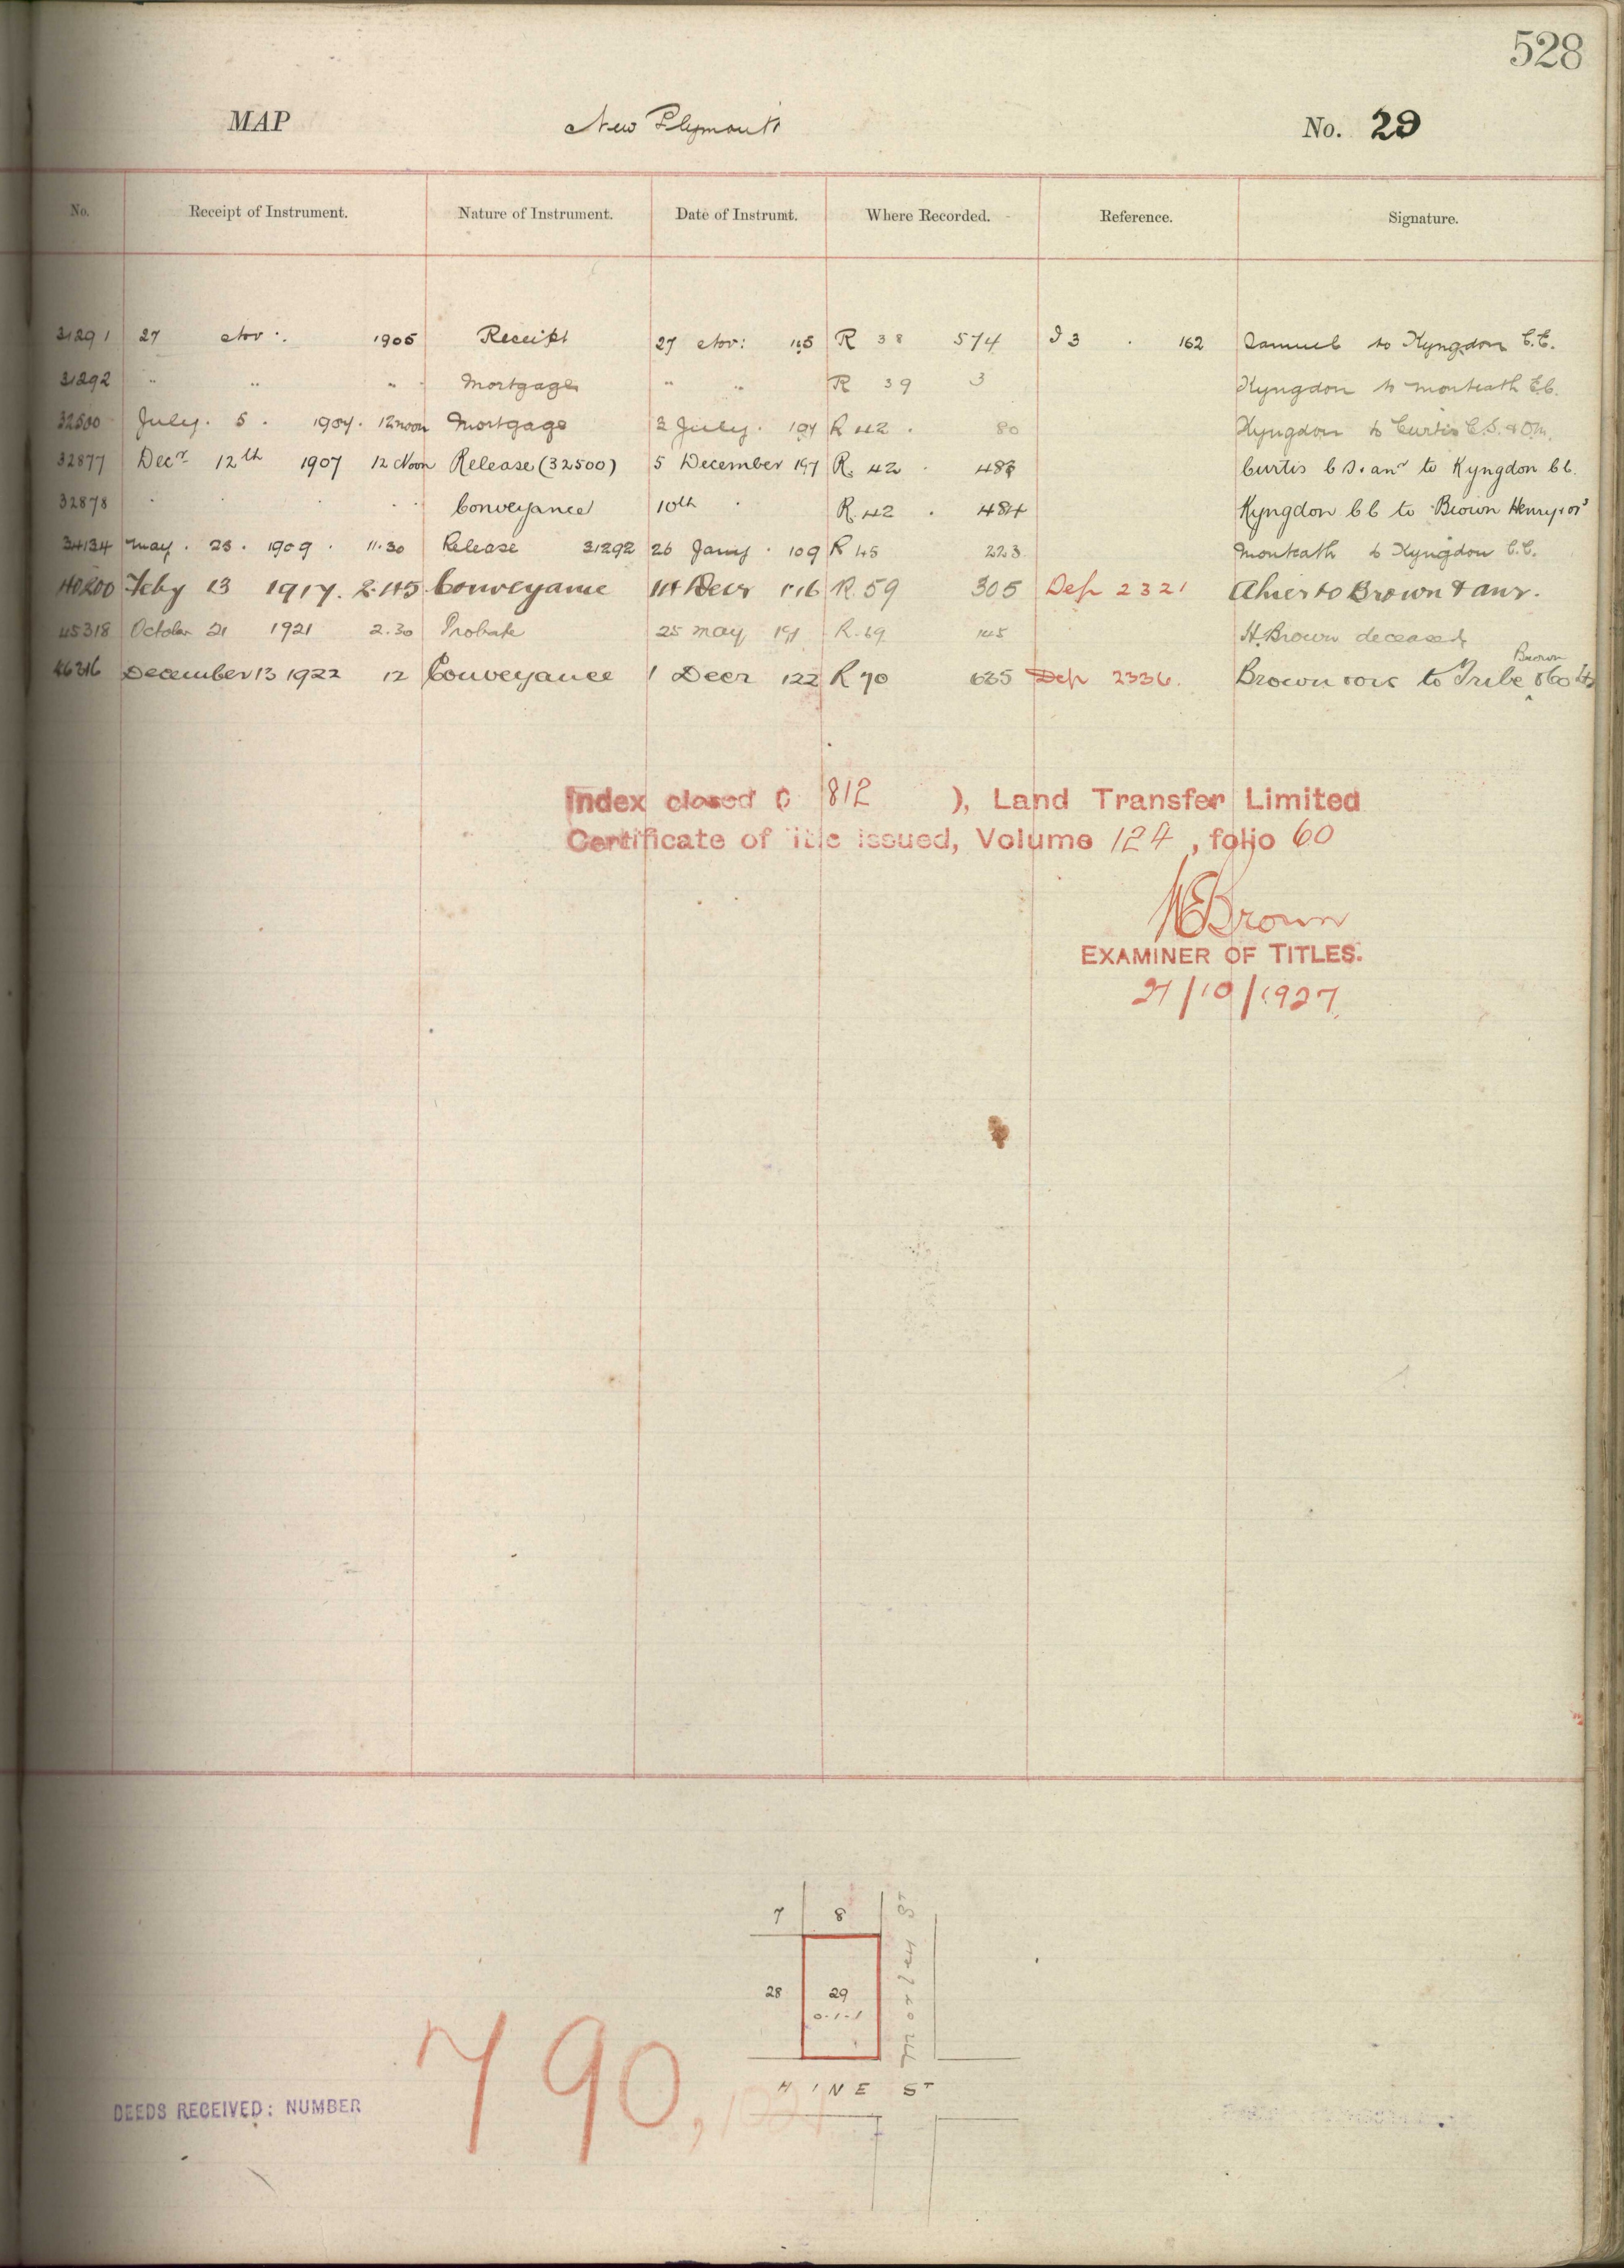 528
MAP New Plymouth No. 29
No. Receipt of Instrument. Nature of Instrument. Date of Instrumt. Where Recorded. Reference. Signature.
31291 27 Nov. 1905 Receipt 27 Nov: '05 R 38 574 I 3 . 162 Samuel to Kyngdon C.C.
31292 " " " Mortgage " " R 39 3 Kyngdon to Monteath C.C.
32500 July. 5. 1907. 12 noon Mortgage 2 July. 197 R 42. 80 Kyngdon to Curtis C.S. & O.M.
32877 Decr 12th 1907 12 Noon Release (32500) 5 December 197 R. 42 . Curtis C S. anr to Kyngdon C C.
32878 . . . Conveyance 10th . R. 42 . 484 Kyngdon C C to Brown Henry & ors
34134 May. 25. 1909. 11.30 Release 31292 26 Jany. 109 R 45 223 Monteath to Kyngdon C.C.
40200 Feby 13 1917. 2.45 Conveyance 14 Decr 1916 R. 59 305 Dep 2321 Ahier to Brown & anr.
45318 October 21 1921 2.30 Probate 25 May 191 R. 69 145 H. Brown deceased
46216 December 13 1922 12 Conveyance 1 Decr 122 R 70 635 Dep 2336. Brown & ors to Tribe Brown & Co Ltd
Index closed ( 812 ), Land Transfer Limited
Certificate of Title issued, Volume 124, folio 60
Brown
EXAMINER OF TITLES.
21/10/1927
7 8 Morley St
28 29
0-1-1
HINE ST
790,
DEEDS RECEIVED: NUMBER